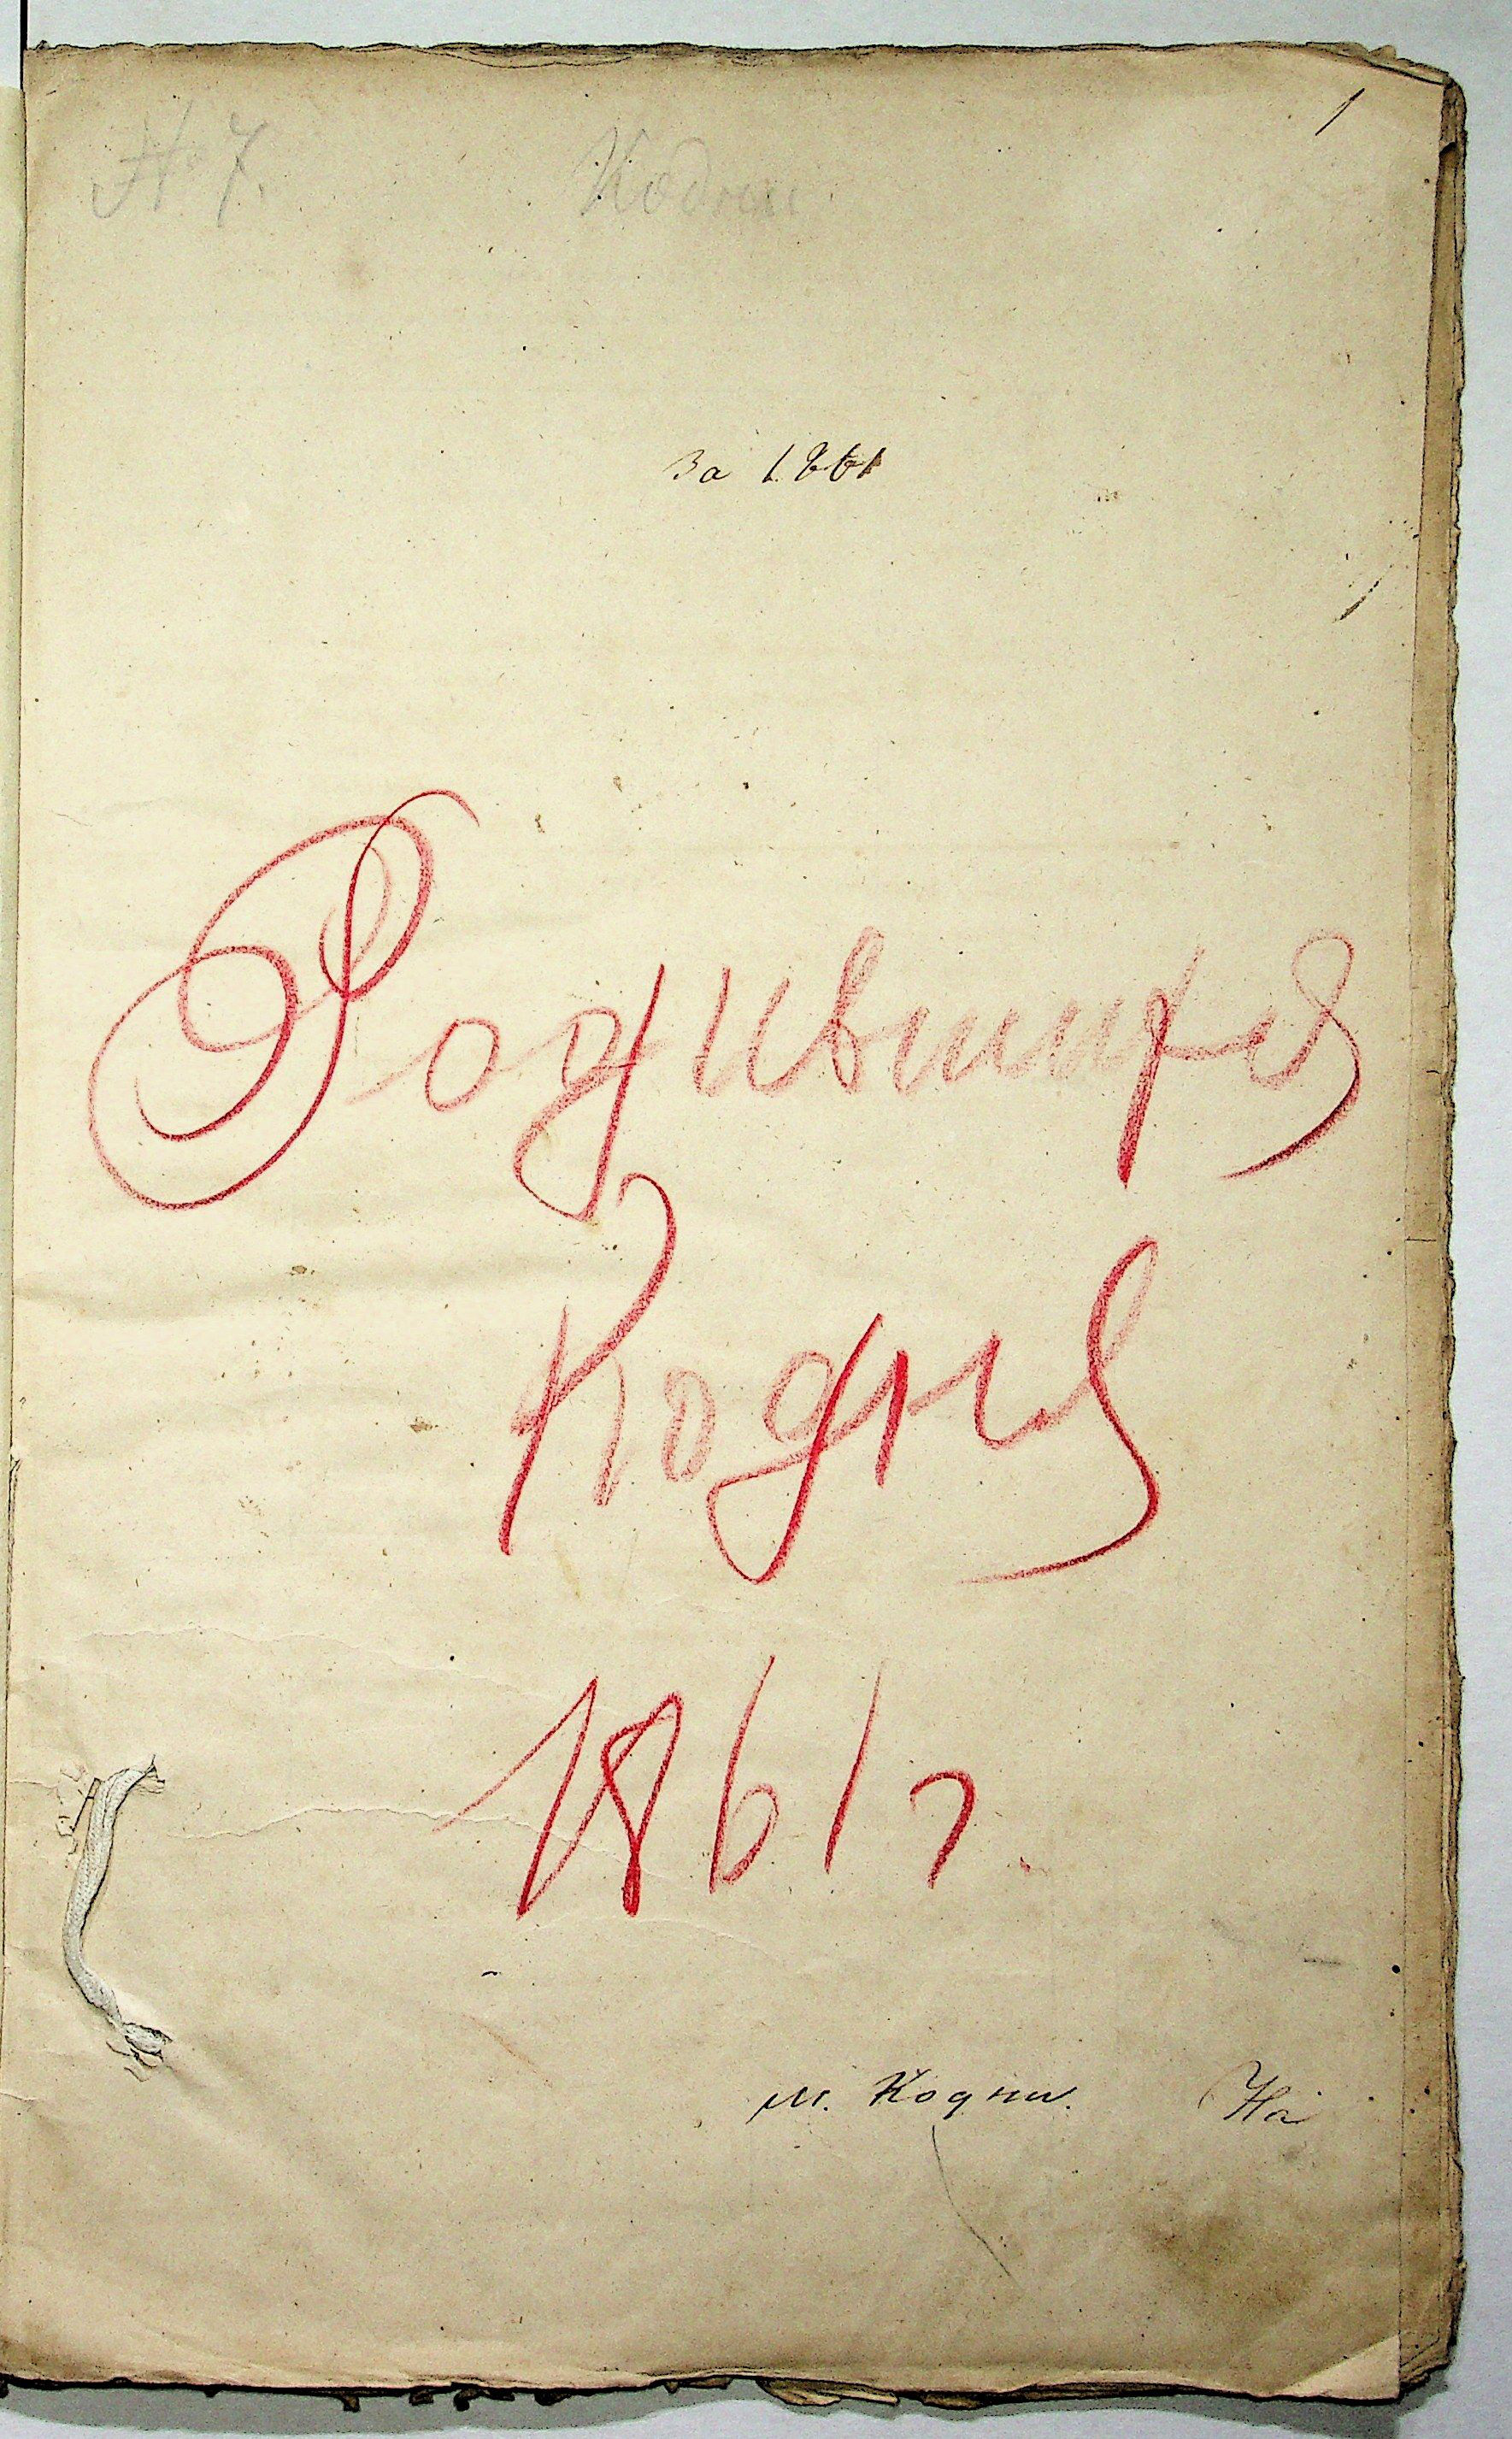 № 7. Кодни 1
За 1861
Родившихся
Кодня
1861 г
м. Кодни. На